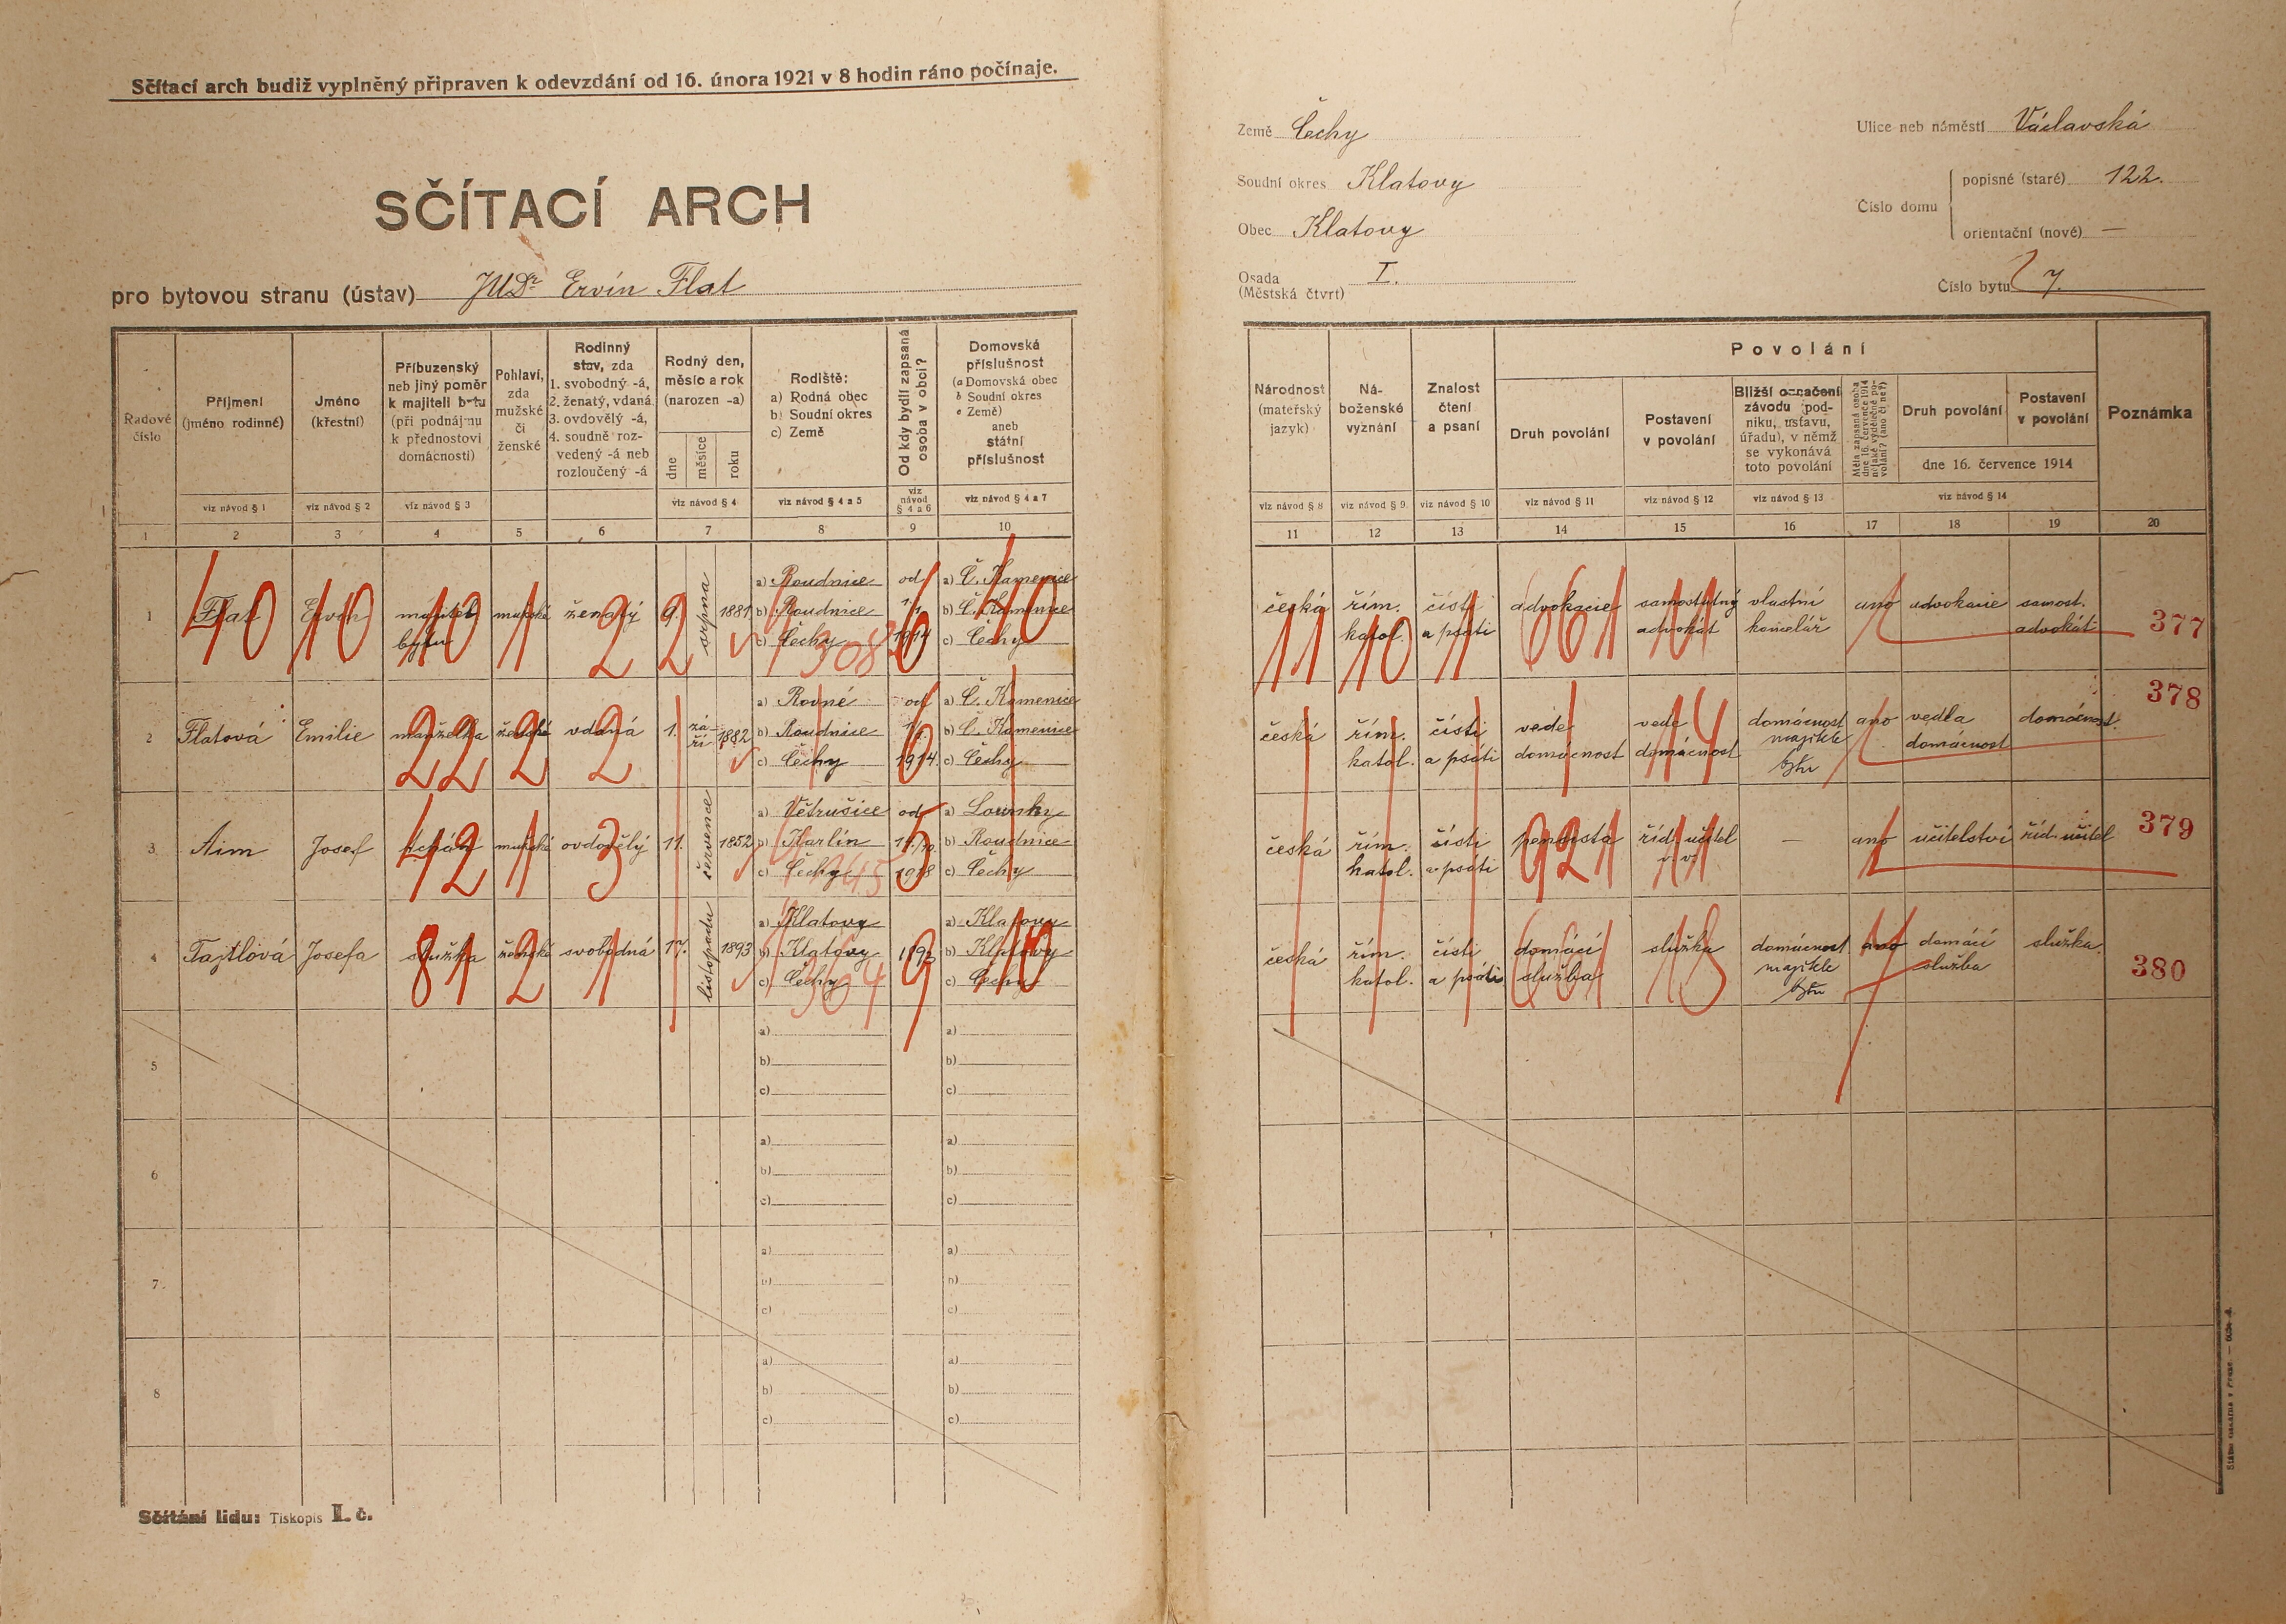 Sčítací arch budiž vyplněný připraven k odevzdání od 16. února 1921 v 8 hodin ráno počínaje.
SČÍTACÍ ARCH
pro bytovou stranu (ústav) JUDr Ervín Flat
Země Čechy
Soudní okres Klatovy
Obec Klatovy
Osada I.
(Městská čtvrt)
Ulice neb náměstí Václavská
Číslo domu
popisné (staré) 122.
orientační (nové) —
Číslo bytu 7.
Řadové číslo
Příjmení (jméno rodinné)
Jméno (křestní)
Příbuzenský neb jiný poměr k majiteli bytu (při podnájmu k přednostovi domácnosti)
Pohlaví, zda mužské či ženské
Rodinný stav, zda 1. svobodný -á, 2. ženatý, vdaná 3. ovdovělý -á, 4. soudně rozvedený -á neb rozloučený -á
Rodný den, měsíc a rok (narozen -a)
dne měsíce roku
Rodiště: a) Rodná obec b) Soudní okres c) Země
Od kdy bydlí zapsaná osoba v obci?
Domovská příslušnost (a Domovská obec b Soudní okres c Země) aneb státní příslušnost
Národnost (mateřský jazyk)
Náboženské vyznání
Znalost čtení a psaní
Povolání
Druh povolání
Postavení v povolání
Bližší označení závodu (podniku, ústavu, úřadu), v němž se vykonává toto povolání
Měla zapsaná osoba dne 16. července 1914 nějaké výdělečné povolání? (ano či ne?)
Druh povolání
Postavení v povolání
dne 16. července 1914
Poznámka
viz návod § 1 viz návod § 2 viz návod § 3 viz návod § 4 viz návod § 4 a 5 viz návod § 4 a 6 viz návod § 4 a 7
viz návod § 8 viz návod § 9 viz návod § 10 viz návod § 11 viz návod § 12 viz návod § 13 viz návod § 14
1 2 3 4 5 6 7 8 9 10
11 12 13 14 15 16 17 18 19 20
1 Flat Ervín majitel bytu mužské ženatý 9. srpna 1881
a) Roudnice
b) Roudnice
c) Čechy
od 1/1 1914
a) Č. Kamenice
b) Č. Kamenice
c) Čechy
česká řím. katol. čísti a psáti advokacie samostatný advokát vlastní kancelář ano advokacie samost. advokát 377
2 Flatová Emilie manželka ženské vdaná 1. září 1882
a) Rovné
b) Roudnice
c) Čechy
od 1914
a) Č. Kamenice
b) Č. Kamenice
c) Čechy
česká řím. katol. čísti a psáti vede domácnost vede domácnost domácnost majitele bytu ano vedla domácnost domácnost. 378
3 Aim Josef tchán mužské ovdovělý 11. července 1852
a) Větrušice
b) Karlín
c) Čechy
od 1918
a) Lounky
b) Roudnice
c) Čechy
česká řím. katol. čísti a psáti pensista říd. učitel v. v. — ano učitelství říd. učitel 379
4 Tajtlová Josefa služka ženské svobodná 17. listopadu 1893
a) Klatovy
b) Klatovy
c) Čechy
1893
a) Klatovy
b) Klatovy
c) Čechy
česká řím. katol. čísti a psáti domácí služba služka domácnost majitele bytu ano domácí služba služka 380
5
a)
b)
c)
a)
b)
c)
6
a)
b)
c)
a)
b)
c)
7
a)
b)
c)
a)
b)
c)
8
a)
b)
c)
a)
b)
c)
Sčítání lidu: Tiskopis I. č.